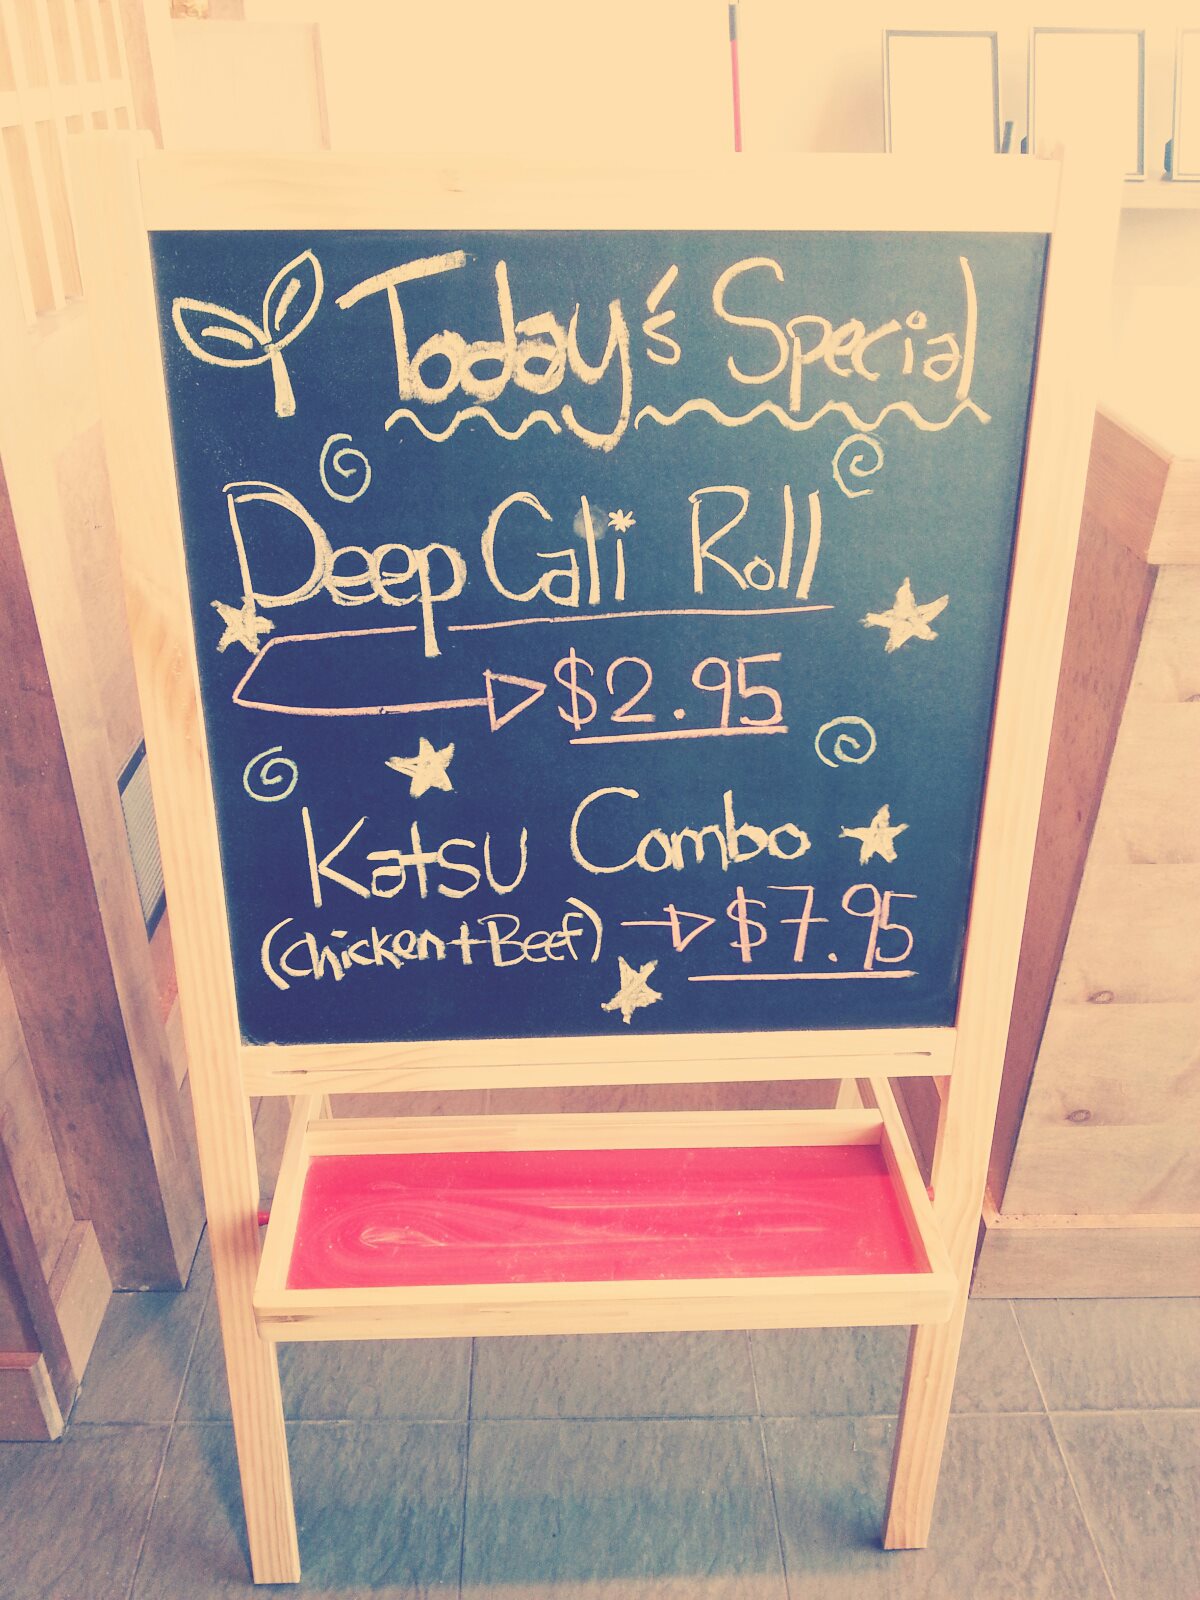 Today's Special
Deep Cali Roll
$2.95
Katsu Combo
(chicken+Beef) $7.95